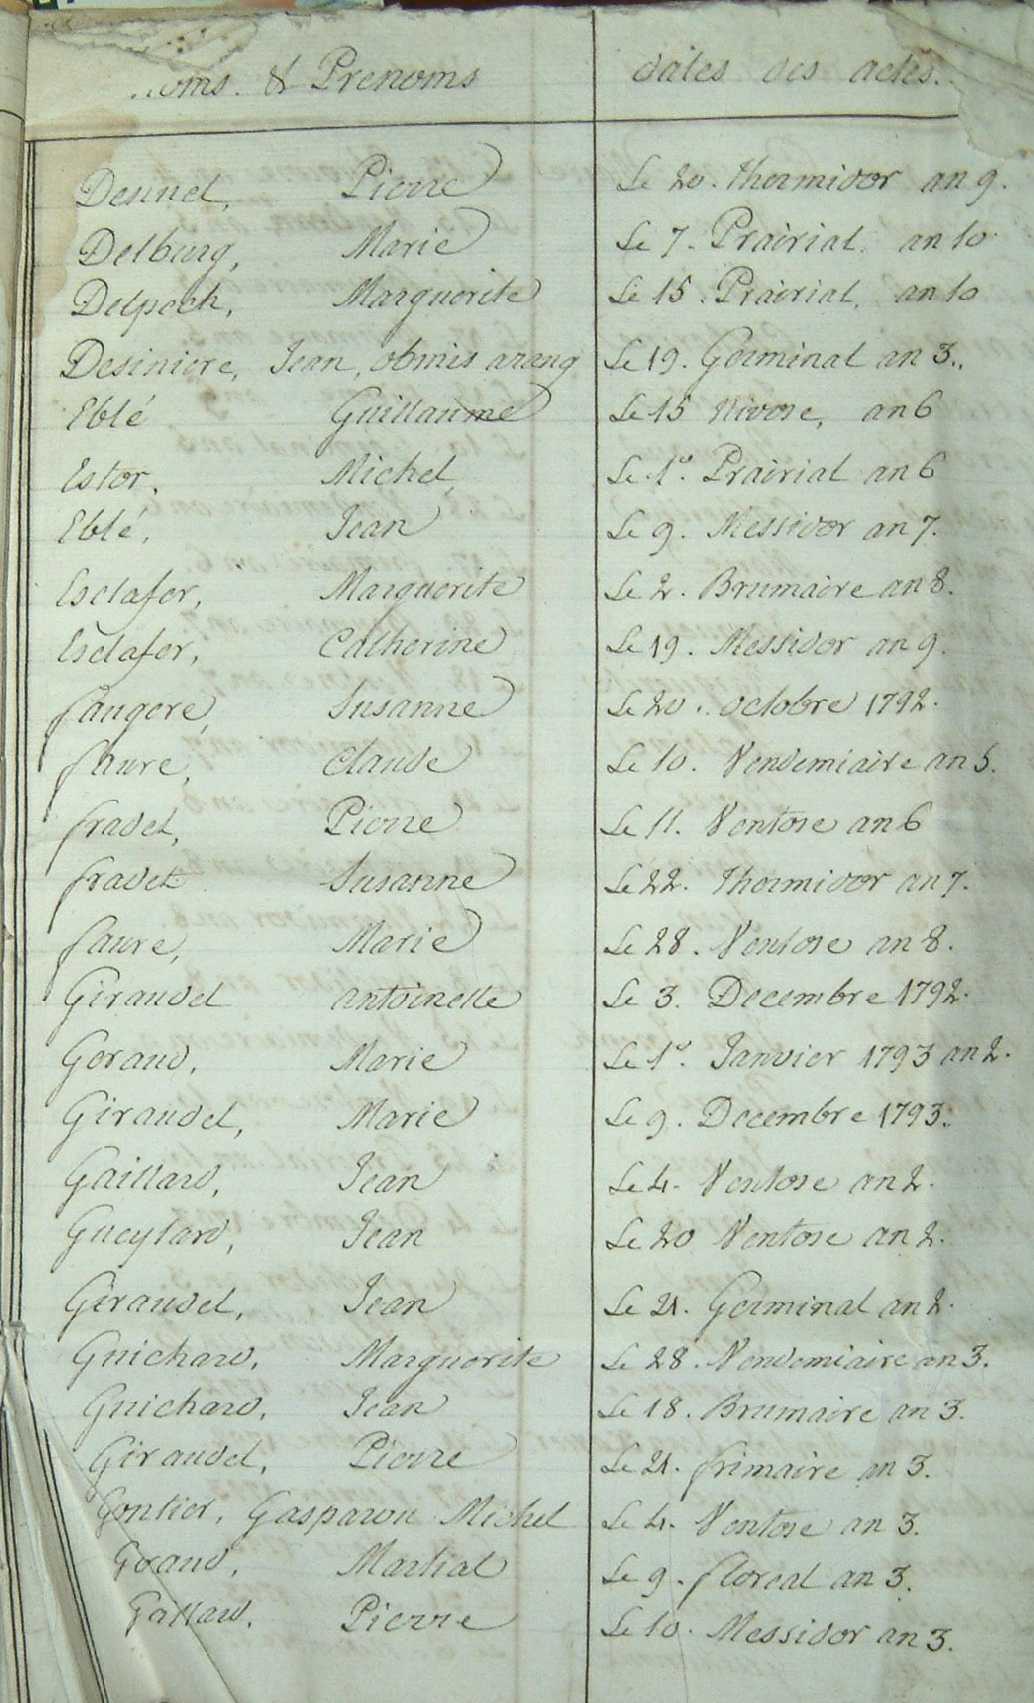 noms & Prenoms dates des actes.
Desnel, Pierre Le 20. thermidor an 9.
Delburg, Marie Le 7. Prairial an 10.
Delpech, Marguerite Le 15. Prairial, an 10
Desiniere, Jean, obmis arang Le 19. Germinal an 3.
Eblé Guillaume Le 15 Nivose, an 6
Estor, Michel, Le 1er. Prairial an 6
Eblé, Jean Le 9. Messidor an 7.
Esclafer, Marguerite Le 2. Brumaire an 8.
Esclafer, Catherine Le 19. Messidor an 9.
faugere, Susanne Le 20. octobre 1792.
faure, Claude Le 10. Vendemiaire an 5.
fradet, Pierre Le 11. Ventose an 6
fradet Susanne Le 22. thermidor an 7.
faure, Marie Le 28. Ventose an 8.
Giraudel antoinette Le 3. Decembre 1792.
Goraud, Marie Le 1er. Janvier 1793 an 2.
Giraudel, Marie Le 9. Decembre 1793.
Gaillard, Jean Le 4. Ventose an 2.
Gueylard, Jean Le 20 Ventose an 2.
Giraudel, Jean Le 21. Germinal an 2.
Guichard, Marguerite Le 28. Vendemiaire an 3.
Guichard, Jean Le 18. Brumaire an 3.
Giraudel, Pierre Le 21. frimaire an 3.
Gontier, Gasparou Michel Le 4. Ventose an 3.
Martial Le 9. floreal an 3.
Gallard, Pierre Le 10. Messidor an 3.